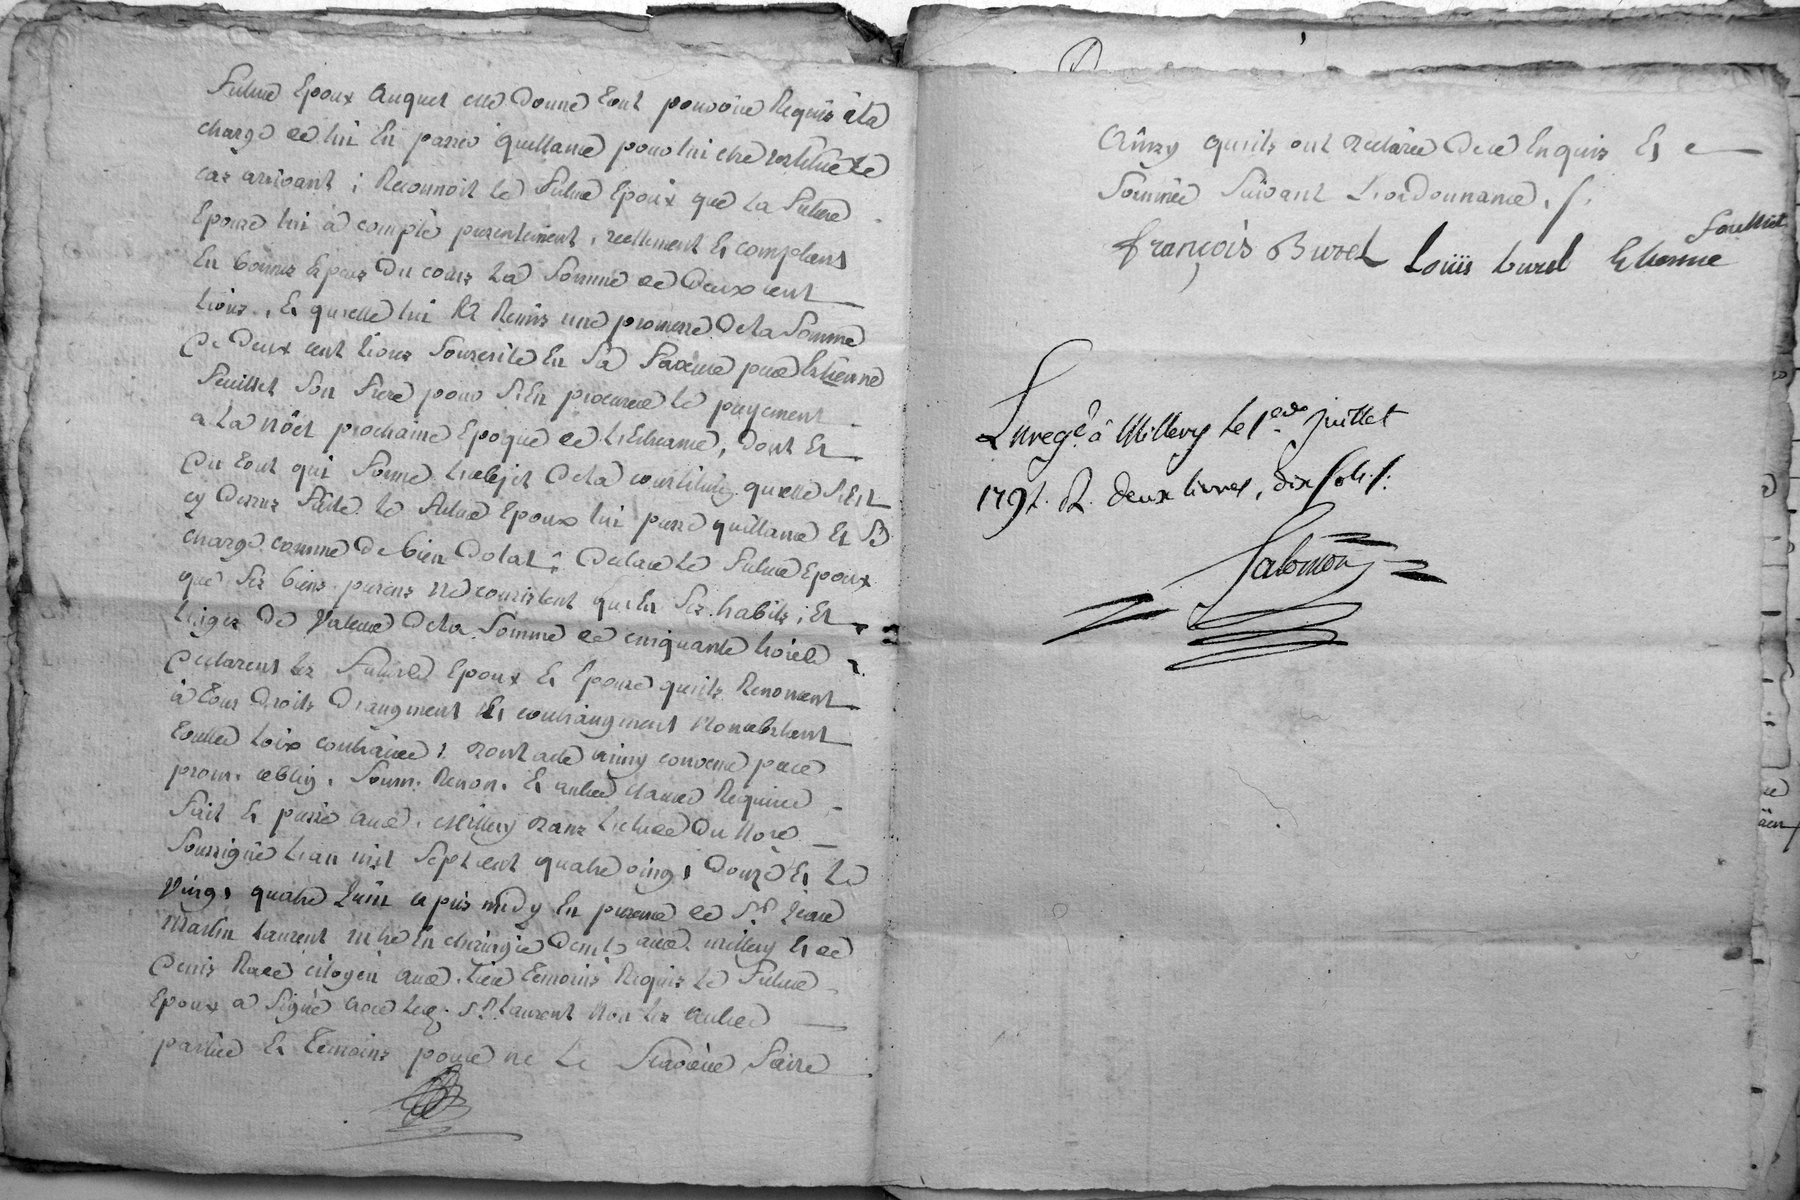 futur Epoux auquel elle donne tout pouvoir Requis a la
charge de lui En passer quittance pour lui etre restitué le
cas arrivant ; Reconnoit le futur Epoux que la future
Epouse lui à compté presentement, reellement Et comptant
En bonnes Especes du cours la somme de deux cent
livres, Et qu'elle lui a Remis une promesse de la somme
de deux cent livres souscrite En sa faveur par Estienne
feuillet son frere pour s'En procurer le payement
a la nöel prochaine Epoque de l'Echeance, dont Et
du tout qui forme l'objet de la constituõn qu'elle s'Est
cy dessus faite le futur Epoux lui passe quittance Et se
charge comme de bien dotal ; declare le futur Epoux
que ses biens presens ne consistent qu'En ses habits ; Et
linges de Valeur de la somme de cinquante livres
declarent les futurs Epoux Et Epouse qu'ils Renoncent
à tous droits d'augment Et contraugment nonobstant
toutes loix contraires ; dont acte ainsy convenu par
prom. oblig. soum. Renon. Et autres clauses Requises
fait Et passé aud. Millery dans l'etude du No.re
soussigné l'an mil sept cent quatre vingt douze Et le
vingt quatre Juin apres midy En presence de S.r Jean
Martin Laurent m.tre En chirurgie dem.t aud. millery Et de
denis Race citoyen aud. lieu temoins Requis le futur
Epoux a signé avec led. s.r Laurent non les autres
parties Et temoins pour ne le scavoir faire
ainsy qu'ils ont declaré de ce Enquis Et
sommés suivant L'ordonnance.
françois Burel Loüis burel Etienne
foulliet
Enreg.é à Millery le 1.er Juillet
179 . R. deux livres, dix sols.
Salomon